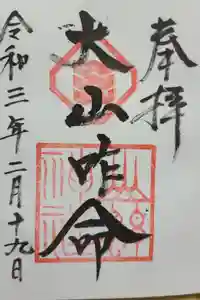 奉拝
大山咋命
令和三年二月十九日